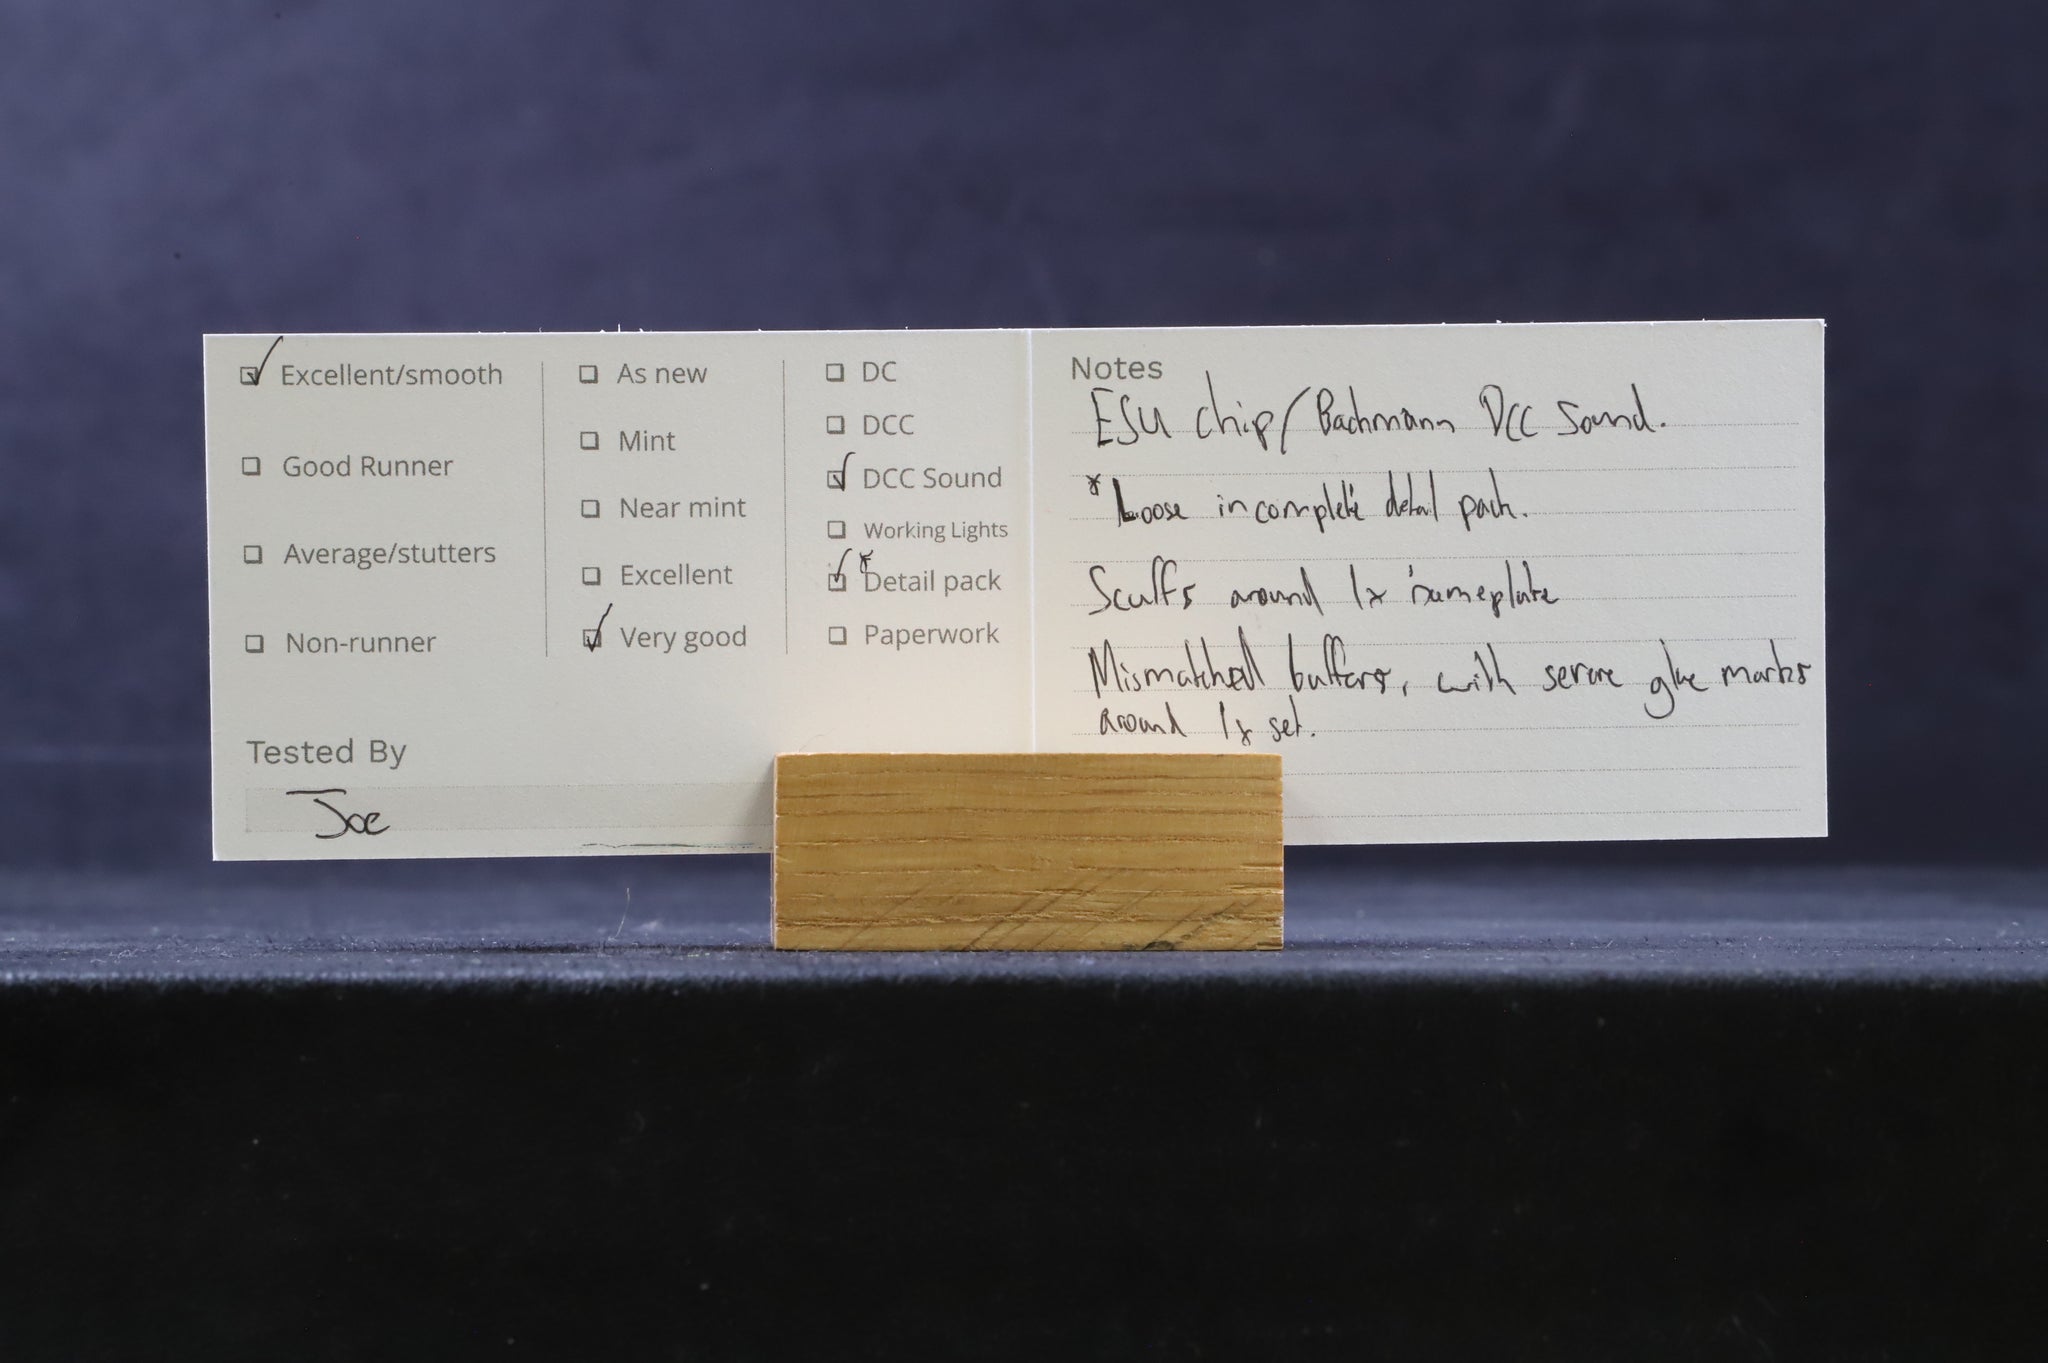 Excellent/smooth
Good Runner
Average/stutters
Non-runner
As new
Mint
Near mint
Excellent
Very good
DC
DCC
DCC Sound
Working Lights
* Detail pack
Paperwork
Tested By
Joe
Notes
ESU chip/Bachmann DCC Sound.
* Loose incomplete detail pack.
Scuffs around 1x nameplate
Mismatched buffers, with severe glue marks
around 1x set.